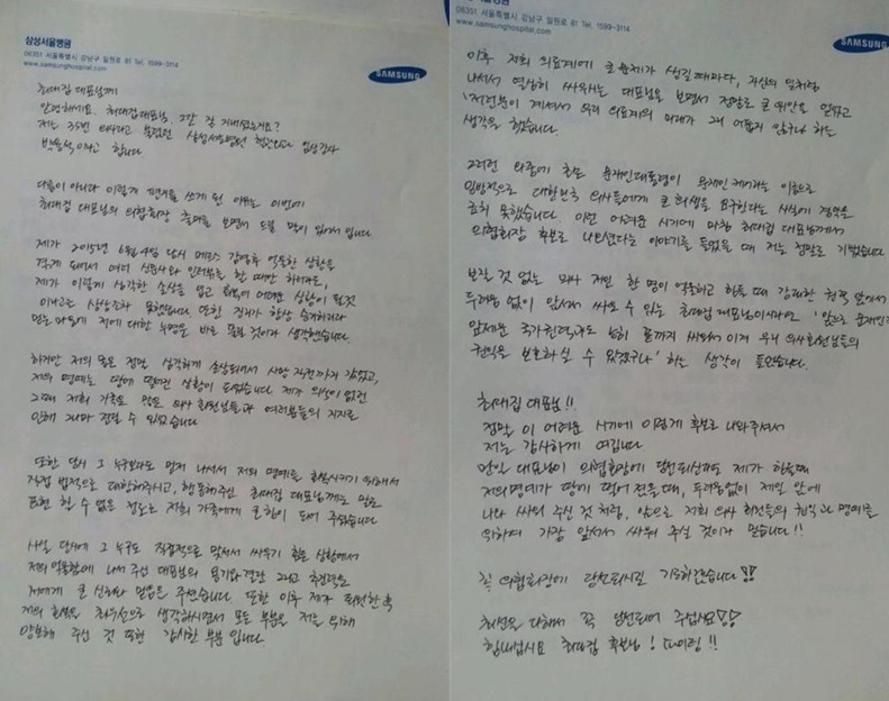 삼성서울병원
06351 서울특별시 강남구 일원로 81 Tel. 1599-3114
www.samsunghospital.com
SAMSUNG
최대집 대표님께
안녕하세요. 최대집대표님, 그간 잘 지내셨는지요?
저는 35번 의사라고 불렸던 삼성서울병원 임상강사
이라고 합니다.
다름이 아니라 이렇게 편지를 쓰게 된 이유는 이번에
최대집 대표님의 의협회장 출마를 보면서 드릴 말이 있어서 입니다.
제가 2015년 6월 4일 당시 메르스 감염후 억울한 상황을
겪게 되어서 여러 신문사와 인터뷰를 한 때만 하더라도,
제가 이렇게 심각한 손상을 입고 어려운 상황이 될것
이라고는 상상조차 못했습니다. 또한 진리가 항상 승리하리라
믿는 마음에 저에 대한 누명을 바로 풀릴 것이라 생각했습니다.
하지만 저의 몸은 정말 심각하게 손상되어서 사망 직전까지 갔었고,
저의 명예는 땅에 떨어진 상황이 되었습니다. 제가 의식이 없던
그때 저희 가족은 많은 의사 회원님들과 여러분들의 지지로
인해 그나마 견딜 수 있었습니다
또한 당시 그 누구보다도 먼저 나서서 저의 명예를 회복시키기 위해서
직접 법적으로 대항해주시고, 행동해주신 최대집 대표님께는 말로
표현 할 수 없을 정도로 저희 가족에게 큰 힘이 되어 주셨습니다
사실 당시에 그 누구도 직접적으로 맞서서 싸우기 힘든 상황에서
저의 억울함에 나서 주신 대표님의 용기와 결단 그리고 추진력은
저에게 큰 신뢰와 믿음을 주셨습니다. 또한 이후 제가 퇴원한 후
저의 회복을 최우선으로 생각하시면서 모든 부분을 저를 위해
양보해 주신 것 또한 감사한 부분 입니다.
서울병원
06351 서울특별시 강남구 일원로 81 Tel. 1599-3114
www.samsunghospital.com
SAMSUNG
이후 저희 의료계에 큰 문제가 생길 때마다, 자신의 일처럼
나서서 열심히 싸우시는 대표님을 보면서 정말로 큰 위안을 얻었고
'저런분이 계셔서 우리 의료계의 미래가 그리 어둡지 않구나' 하는
생각을 했습니다.
그러던 와중에 최근 문재인대통령이 문재인케어라는 이름으로
일방적으로 대한민국 의사들에게 큰 희생을 요구한다는 사실에 경악을
금치 못했습니다. 이런 어려운 시기에 마침 최대집 대표님께서
의협회장 후보로 나오셨다는 이야기를 들었을 때 저는 정말로 기뻤습니다
보잘 것 없는 의사 개인 한 명이 억울하고 힘들 때 강대한 권력 앞에서
두려움 없이 앞서서 싸울 수 있는 최대집 대표님이시라면 '앞으로
앞세운 국가권력과도 능히 끝까지 싸워서 이겨 우리 의사회원님들의
권익을 보호하실 수 있겠구나' 하는 생각이 들었습니다.
최대집 대표님!!
정말 이 어려운 시기에 이렇게 후보로 나와주셔서
저는 감사하게 여깁니다
만일 대표님이 의협회장에 당선되신다면 제가 힘들때
저의 명예가 땅에 떨어 졌을 때, 두려움없이 제일 앞에
나와 싸워 주신 것 처럼, 앞으로 저희 의사 회원들의 권익과 명예를
위하여 가장 앞서서 싸워 주실 것이라 믿습니다!!
꼭 의협회장에 당선되시길 기원하겠습니다!!
최선을 다해서 꼭 당선되어 주십시오!!
힘내십시요 최대집 후보님! 화이팅!!